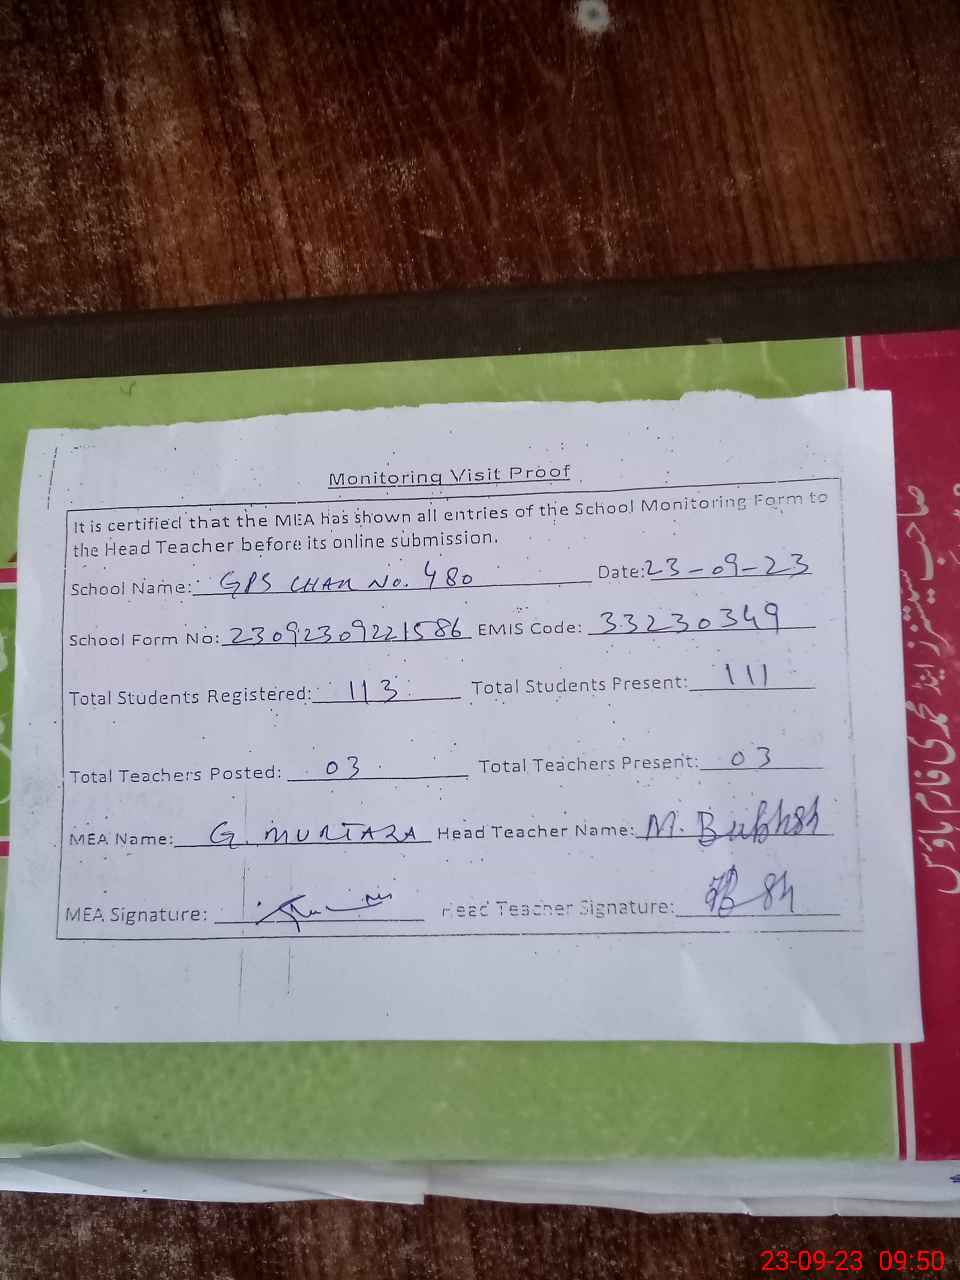 Monitoring Visit Proof
It is certified that the MEA has shown all entries of the School Monitoring Form to
the Head Teacher before its online submission.
School Name: GPS CHAK No. 480 Date: 23-09-23
School Form No: 23092309221586 EMIS Code: 33230349
Total Students Registered: 113 Total Students Present: 111
Total Teachers Posted: 03 Total Teachers Present: 03
MEA Name: G. MURTAZA Head Teacher Name: M. Bukhsh
MEA Signature: Head Teacher Signature:
صاحب سیڈز اینڈ محمدی فارم ہاؤس
23-09-23 09:50